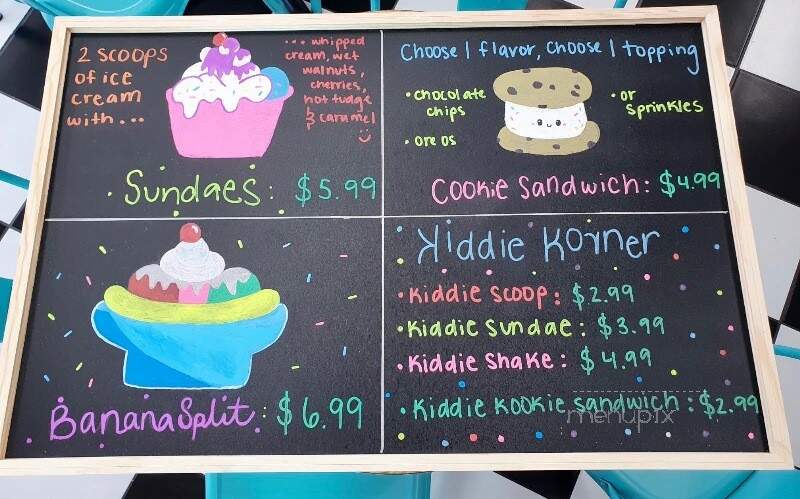 2 scoops
of ice
cream
with...
... whipped
cream, wet
walnuts,
cherries,
hot fudge
& caramel
Sundaes: $5.99
Choose 1 flavor, choose 1 topping
• chocolate
chips
• oreos
• or
sprinkles
Cookie Sandwich: $4.99
Banana Split: $6.99
Kiddie Korner
• Kiddie Scoop: $2.99
• Kiddie Sundae: $3.99
• Kiddie Shake: $4.99
• Kiddie Kookie Sandwich: $2.99
menupix